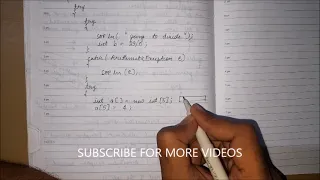 try
{
try
{
sopln( " going to divide");
int b = 39/0;
}
catch (ArithmeticException e)
{
sopln (e);
}
try
{
int a[] = new int [5];
a[5] = 4;
SUBSCRIBE FOR MORE VIDEOS